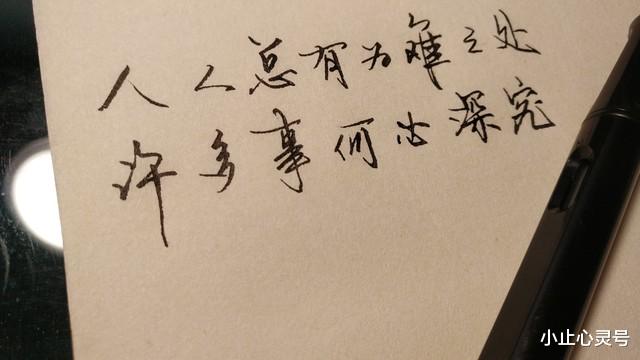 人人总有为难之处
许多事何必深究
小止心灵号